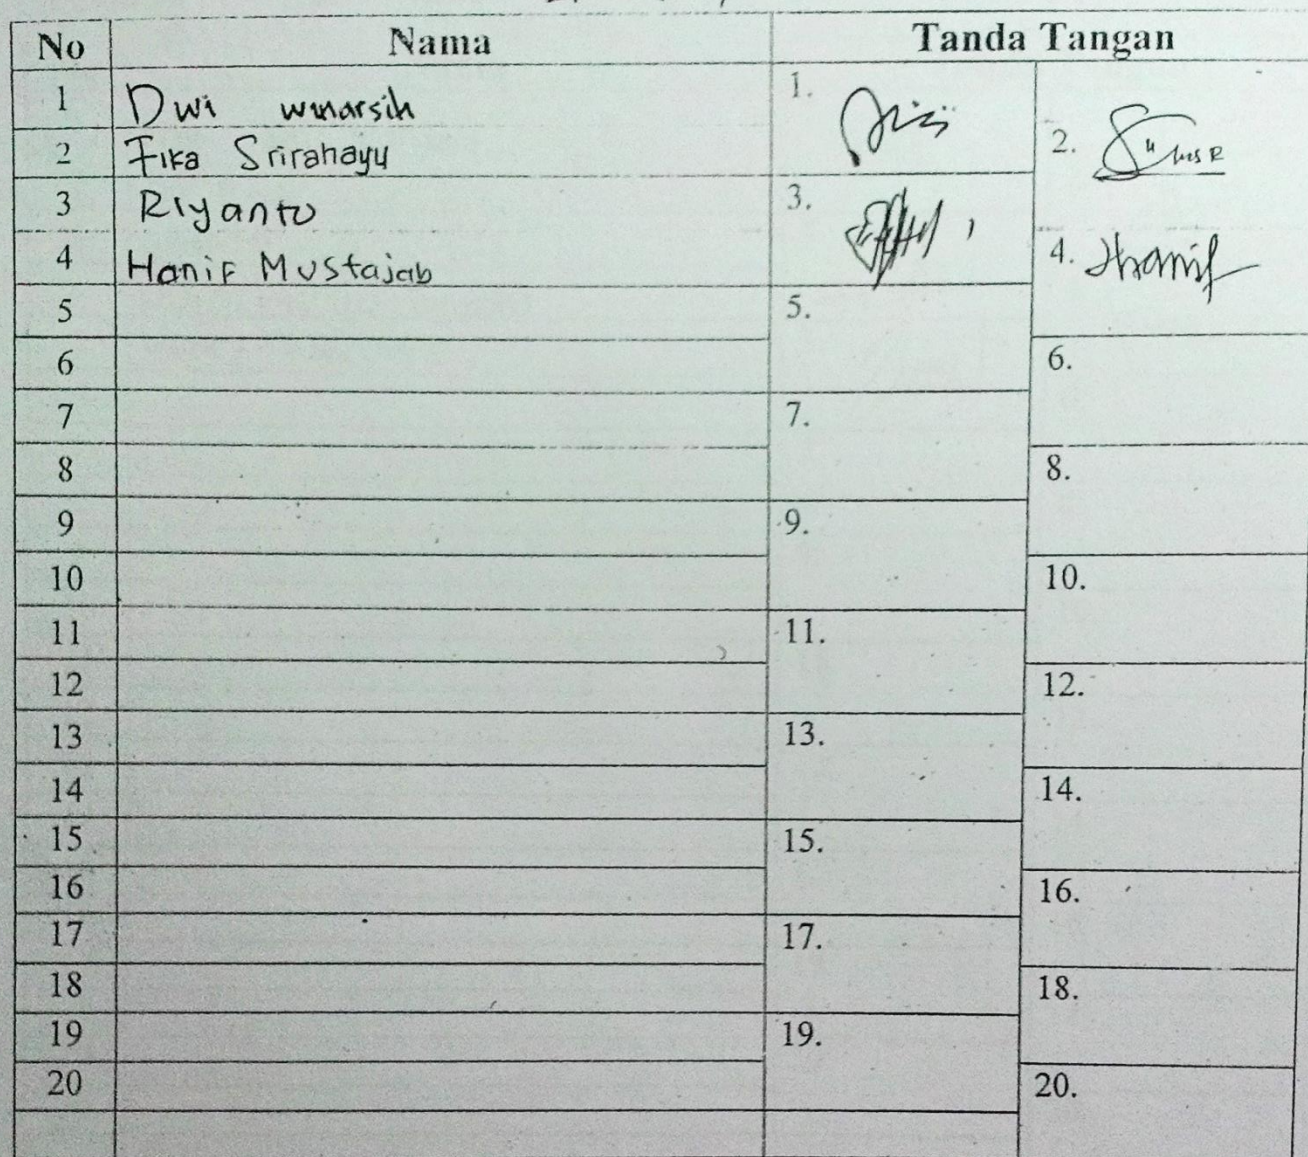 No Nama Tanda Tangan
1 Dwi winarsih 1.
2 Fika Srirahayu 2.
3 Riyanto 3.
4 Hanif Mustajab 4. Hanif
5 5.
6 6.
7 7.
8 8.
9 9.
10 10.
11 11.
12 12.
13 13.
14 14.
15 15.
16 16.
17 17.
18 18.
19 19.
20 20.